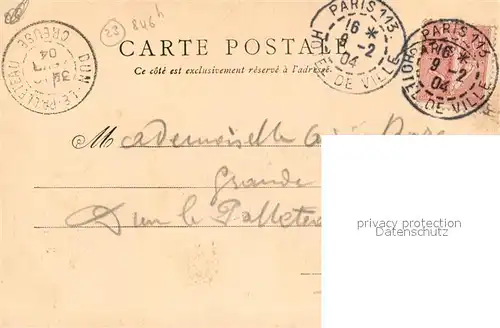 23 846h
CARTE POSTALE
Ce côté est exclusivement réservé à l'adresse
PARIS 113
16 *
9 -2
04
HOTEL DE VILLE
PARIS 113
16 *
9 -2
04
HOTEL DE VILLE
DUN-LE-PALLETEAU
04
CREUSE
Mademoiselle
Grande
Dun le Palletea
privacy protection
Datenschutz